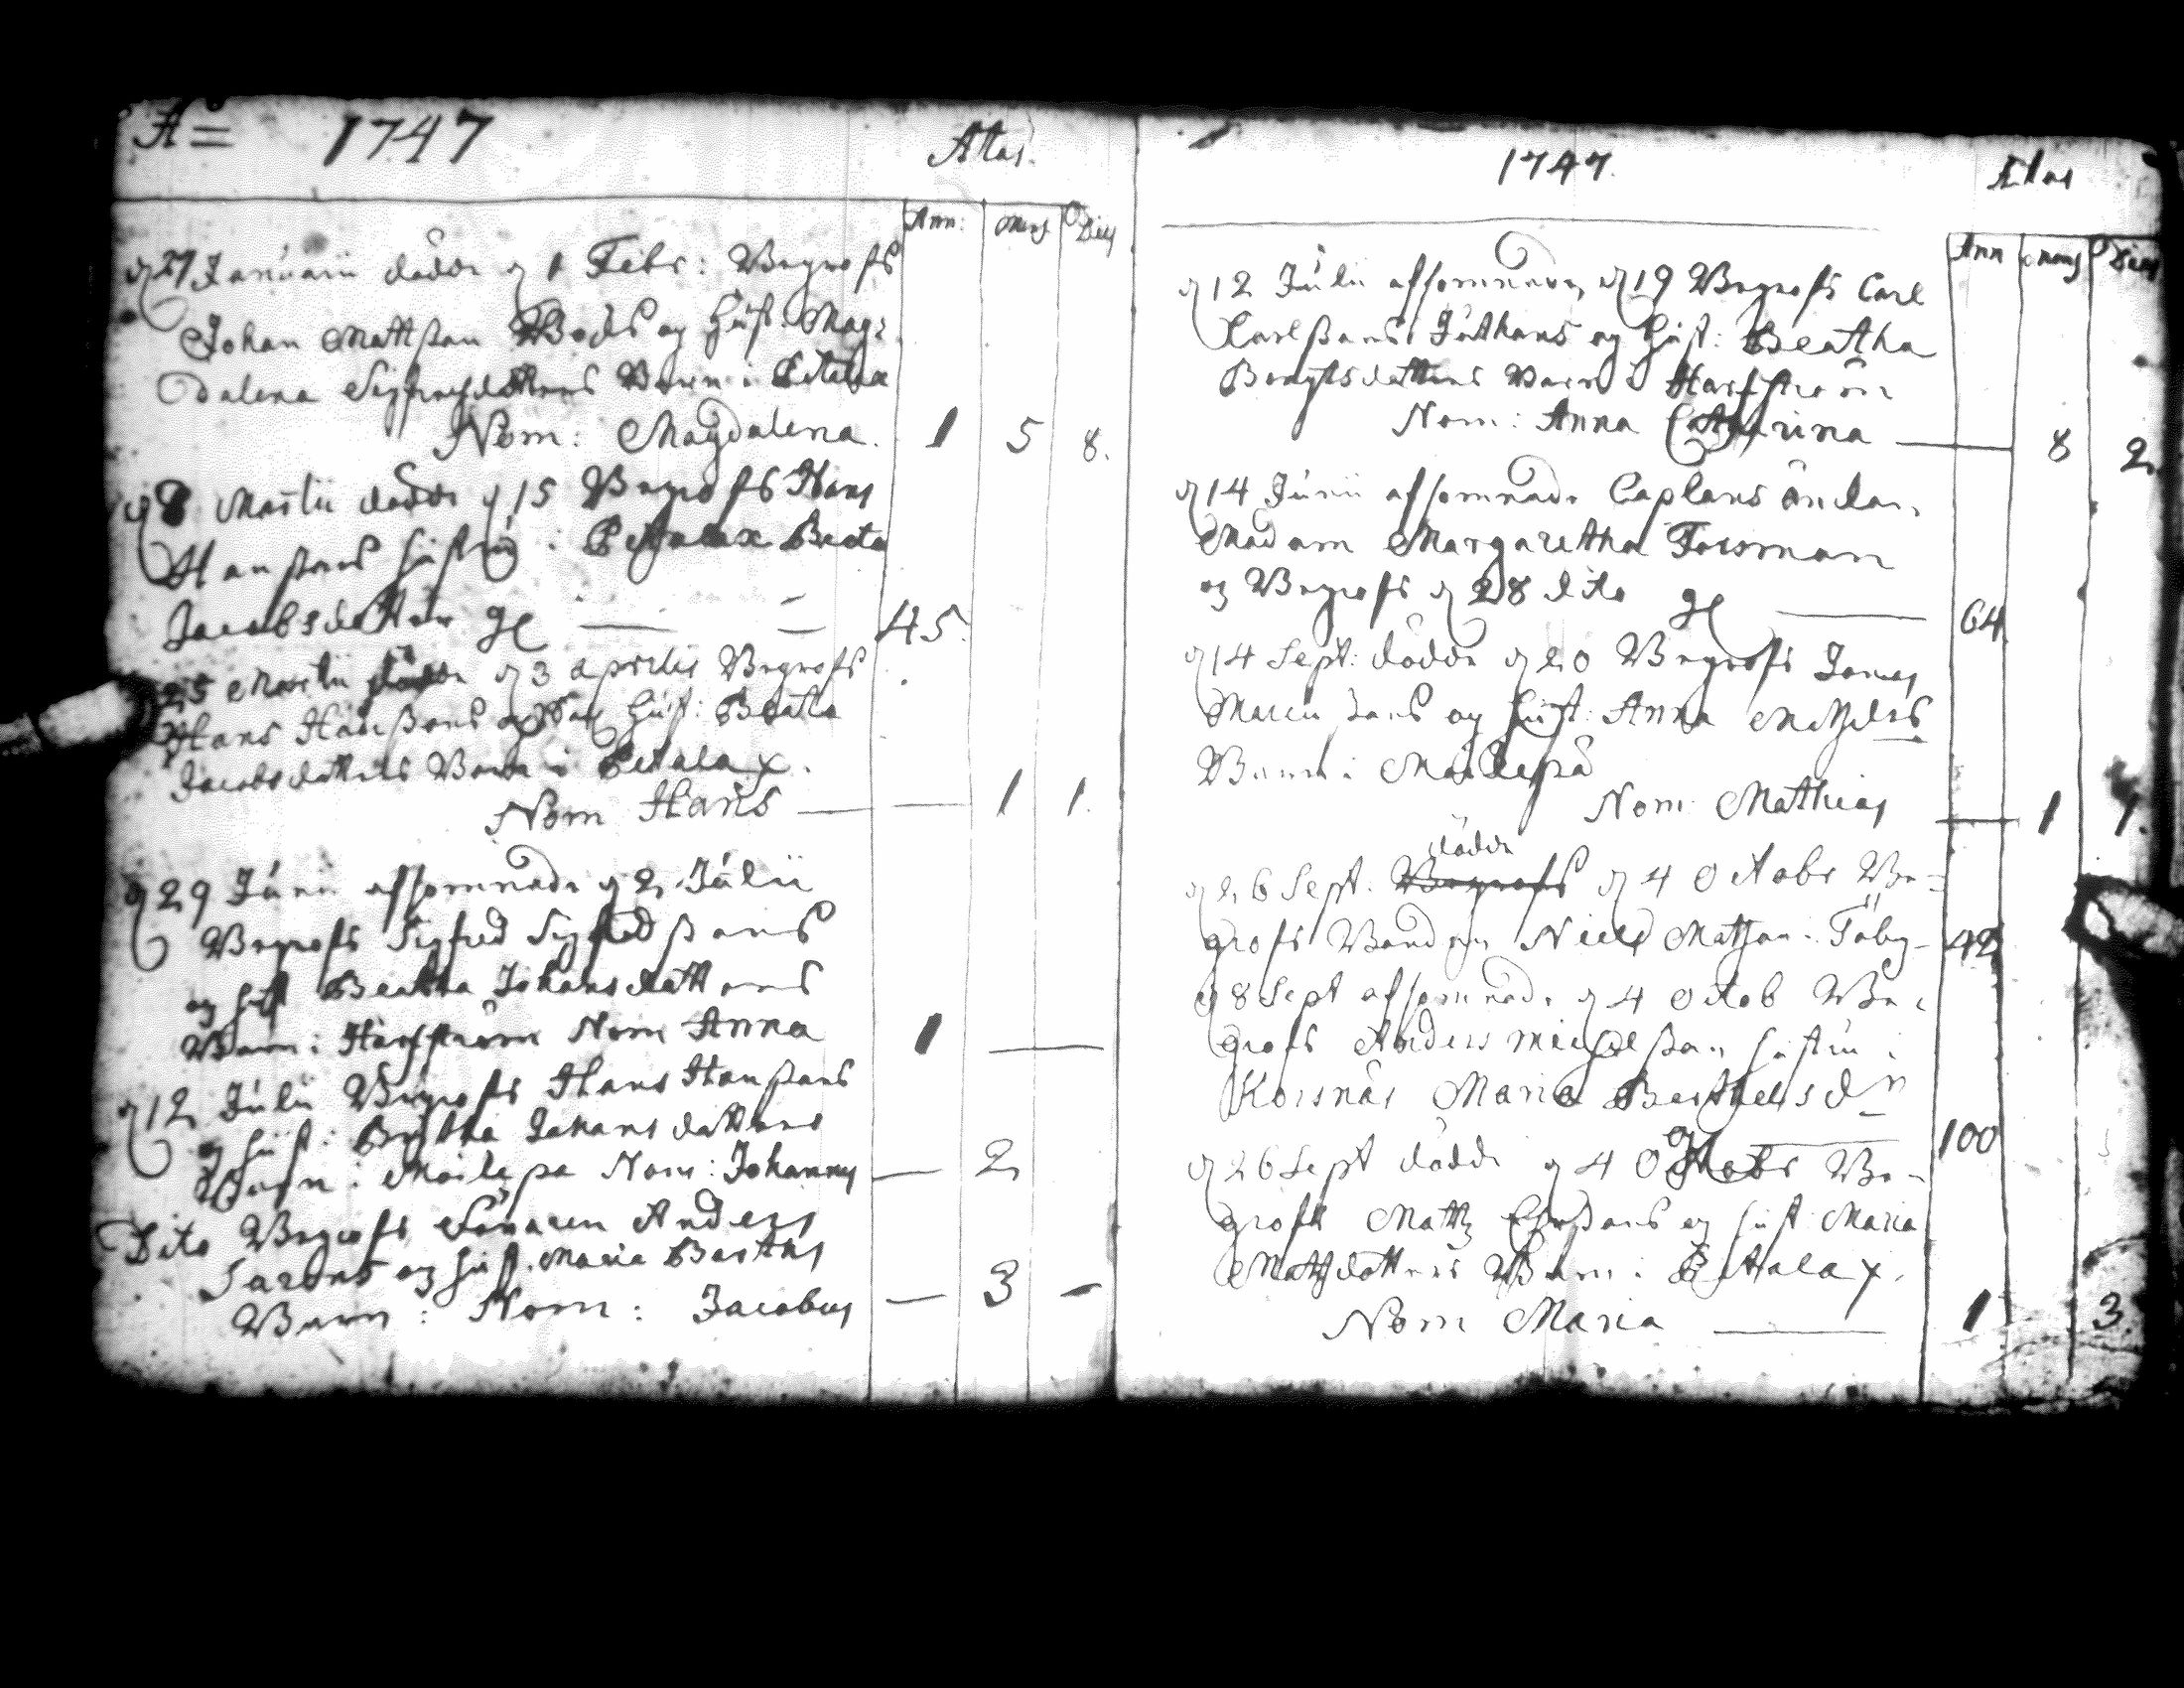 Ao 1747 Ætas.
Ann: Mens Dies
d 27 Januarii dödde d 1 Febr: Begrofs
Johan Mattssan Bods og hust. Mag=
dalena Sigfredsdotters Barn i Petalax
Nom: Magdalena. 1 5 8.
d 8 Martii dödde d 15 Begrofs Hans
Hanssans hustru i Petalax Beata
Jacobsdotter — — 45.
25 Martii dödde d 3 aprilis Begrofs
Hans Hanssans og hust: Beata
Jacobsdotters Barn i Petalax.
Nom Hans — — 1 1.
d 29 Junii afsomnade d 2 Julii
Begrofs Sigfred Sigfredssans
og hust Beatha Johansdotters
Barn i Harfström Nom Anna 1 —
d 12 Julii Begrofs Hans Hanssans
og hust: Johansdotters
Barn i Moikepä Nom: Johannes — 2
Dito Begrofs Anders
og hust. Maria Barthls
Barn: Nom: Jacobus — 3 —
1747. Ætas
Ann mens Dies
d 12 Julii afsomnade, d 19 Begrofs Carl
Carlssans og hust: Beatha
Bengtsdotters Barn i Harfström
Nom: Anna Catharina — 8 2.
d 14 Junii afsomnade Caplans änkan,
Madam Margaretha Forsman
og Begrofs d 28 dito — 64.
d 14 Sept: dödde d 20 Begrofs
og hust: Anna
Barn i Moikepä
Nom: Mathias — 1 1.
dödde
d 26 Sept: Begrofs d 4 Octobr Be=
grofs Bonden Niels Matsan i Töby — 42
d 8 Sept afsomnade d 4 Octob Be=
grofs Anders hustru i
Korsnäs Maria Barthelsdr
— 100
d 26 Sept dödde d 4 Octobr Be=
grofs Matts og hust Maria
Mattsdotters Barn i Petalax.
Nom Maria — 1 3.